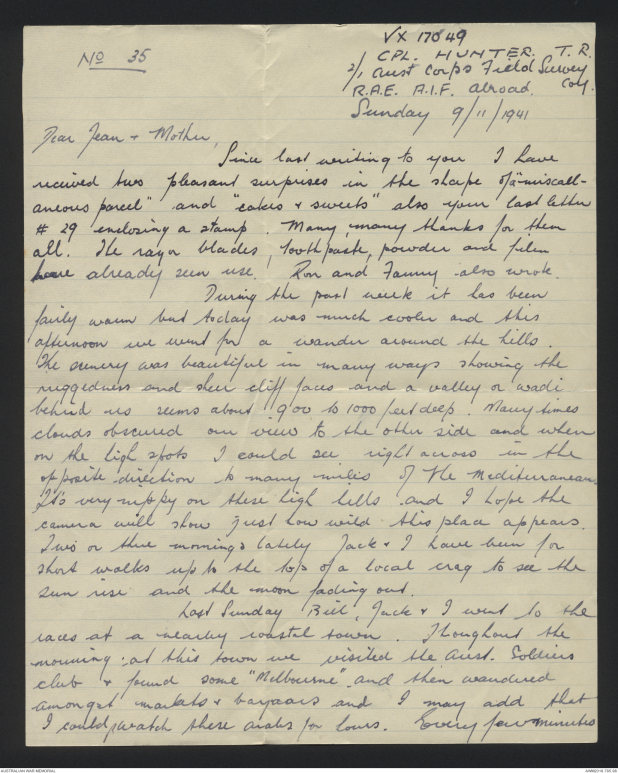 No 35
VX 17049
CPL. HUNTER. T. R.
2/1 Aust Corps Field Survey Coy.
R.A.E. A.I.F. abroad.
Sunday 9/11/1941
Dear Jean & Mother,
Since last writing to you I have
received two pleasant surprises in the shape of a "miscell-
aneous parcel" and "cakes & sweets" also your last letter
# 29 enclosing a stamp. Many, many thanks for them
all. The razor blades, toothpaste, powder and film
have already seen use. Ron and Fanny also wrote.
During the past week it has been
fairly warm but today was much cooler and this
afternoon we went for a wander around the hills.
The scenery was beautiful in many ways showing the
ruggedness and sheer cliff faces and a valley or wadi
behind us seems about 900 to 1000 feet deep. Many times
clouds obscured our view to the other side and when
on the high spots I could see right across in the
opposite direction to many miles of the Mediterranean.
It's very nippy on these high hills and I hope the
camera will show just how wild this place appears.
Two or three mornings lately Jack & I have been for
short walks up to the top of a local crag to see the
sun rise and the moon fading out.
Last Sunday Bill, Jack & I went to the
races at a nearby coastal town. Thoughout the
morning at this town we visited the Aust. Soldiers
club & found some "Melbourne" and then wandered
amongst markets & bazaars and I may add that
I could watch these arabs for hours. Every few minutes
AUSTRALIAN WAR MEMORIAL